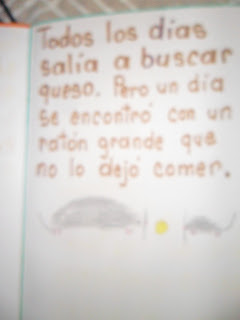 Todos los dias
salía a buscar
queso. Pero un día
se encontró con un
ratón grande que
no lo dejó comer.